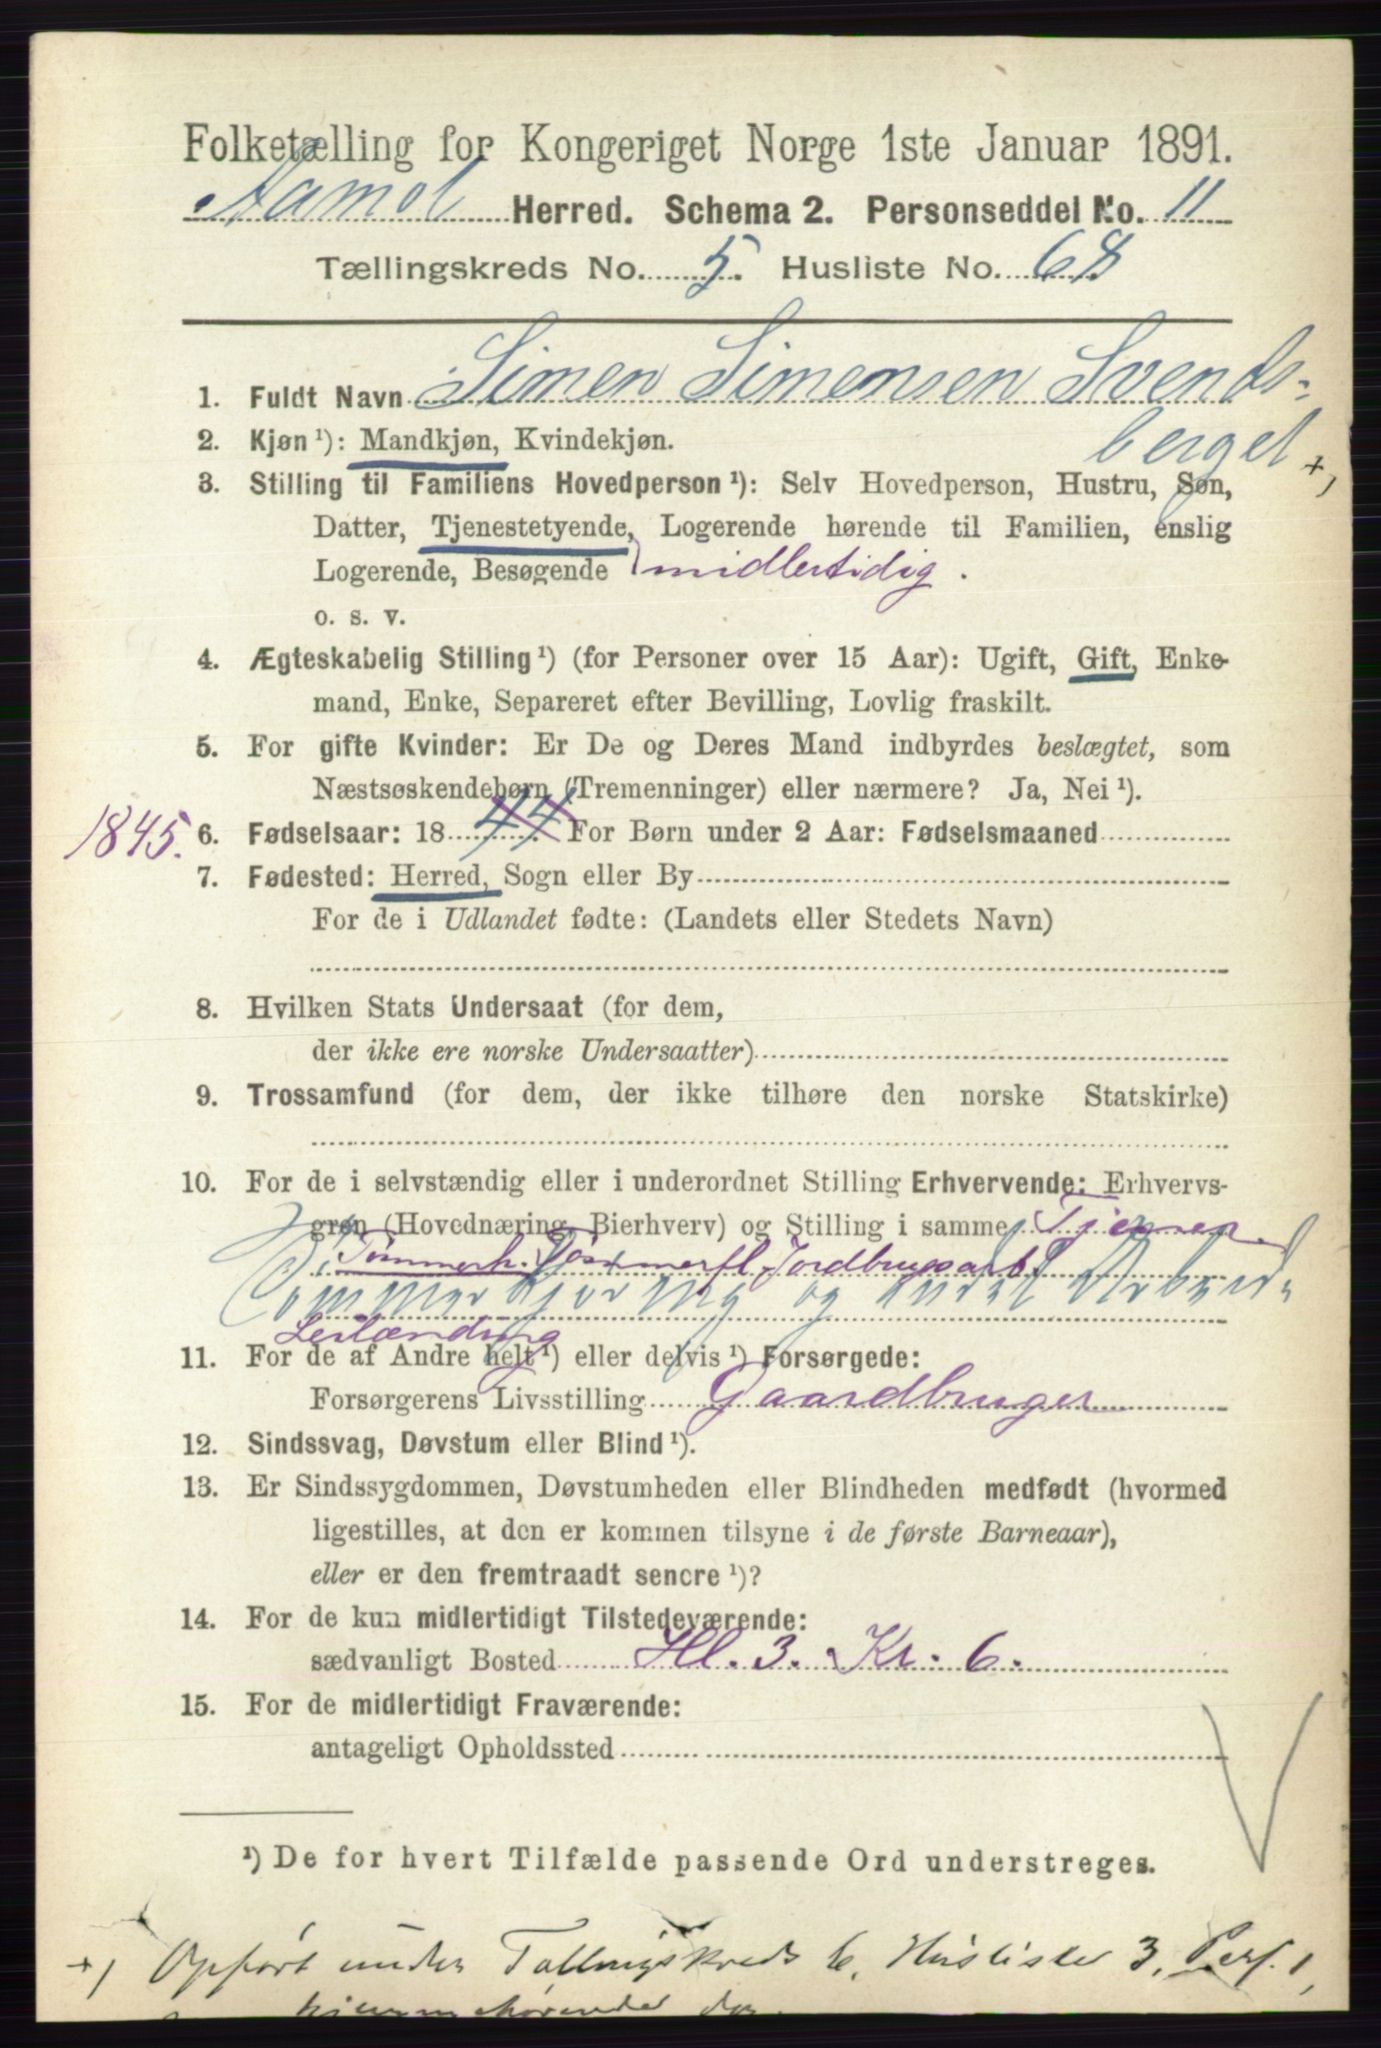 Folketælling for Kongeriget Norge 1ste Januar 1891.
Aamot Herred. Schema 2. Personseddel No. 11
Tællingskreds No. 5. Husliste No. 68
1. Fuldt Navn Simen Simensen Svends-
berget +)
2. Kjøn ¹): Mandkjøn, Kvindekjøn.
3. Stilling til Familiens Hovedperson ¹): Selv Hovedperson, Hustru, Søn,
Datter, Tjenestetyende, Logerende hørende til Familien, enslig
Logerende, Besøgende midlertidig.
o. s. v.
4. Ægteskabelig Stilling ¹) (for Personer over 15 Aar): Ugift, Gift, Enke-
mand, Enke, Separeret efter Bevilling, Lovlig fraskilt.
5. For gifte Kvinder: Er De og Deres Mand indbyrdes beslægtet, som
Næstsøskendebørn (Tremenninger) eller nærmere? Ja, Nei ¹).
1845. 6. Fødselsaar: 18 44 For Børn under 2 Aar: Fødselsmaaned
7. Fødested: Herred, Sogn eller By
For de i Udlandet fødte: (Landets eller Stedets Navn)
8. Hvilken Stats Undersaat (for dem,
der ikke ere norske Undersaatter)
9. Trossamfund (for dem, der ikke tilhøre den norske Statskirke)
10. For de i selvstændig eller i underordnet Stilling Erhvervende: Erhvervs-
gren (Hovednæring, Bierhverv) og Stilling i samme Tjener.
Tømmerh. Tømmerfl. Jordbrugsarb.
Tømmerkjøring og andet Arbeid.
Leilænding
11. For de af Andre helt ¹) eller delvis ¹) Forsørgede:
Forsørgerens Livsstilling Gaardbruger
12. Sindssvag, Døvstum eller Blind ¹).
13. Er Sindssygdommen, Døvstumheden eller Blindheden medfødt (hvormed
ligestilles, at den er kommen tilsyne i de første Barneaar),
eller er den fremtraadt senere ¹)?
14. For de kun midlertidigt Tilstedeværende:
sædvanligt Bosted Hl. 3. Kr. 6.
15. For de midlertidigt Fraværende:
antageligt Opholdssted
¹) De for hvert Tilfælde passende Ord understreges.
+) Opført under Tællingskreds 6, Husliste 3, Pers. 1,
hjemmehørende der.